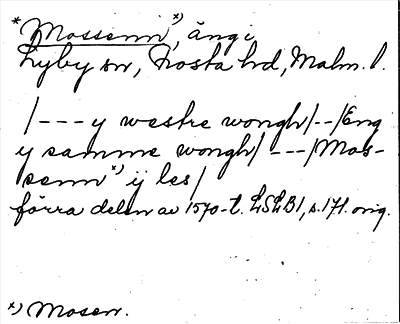 * Mossenn x), äng i
Lyby sn, Frosta hd, Malm. l.
/--- y westre wongh/--/Eng
y samme wongh/ ---/Mos-
senn x) ij les/
förra delen av 1570-t. LSLB1, s. 171. orig.
x) Mosen.